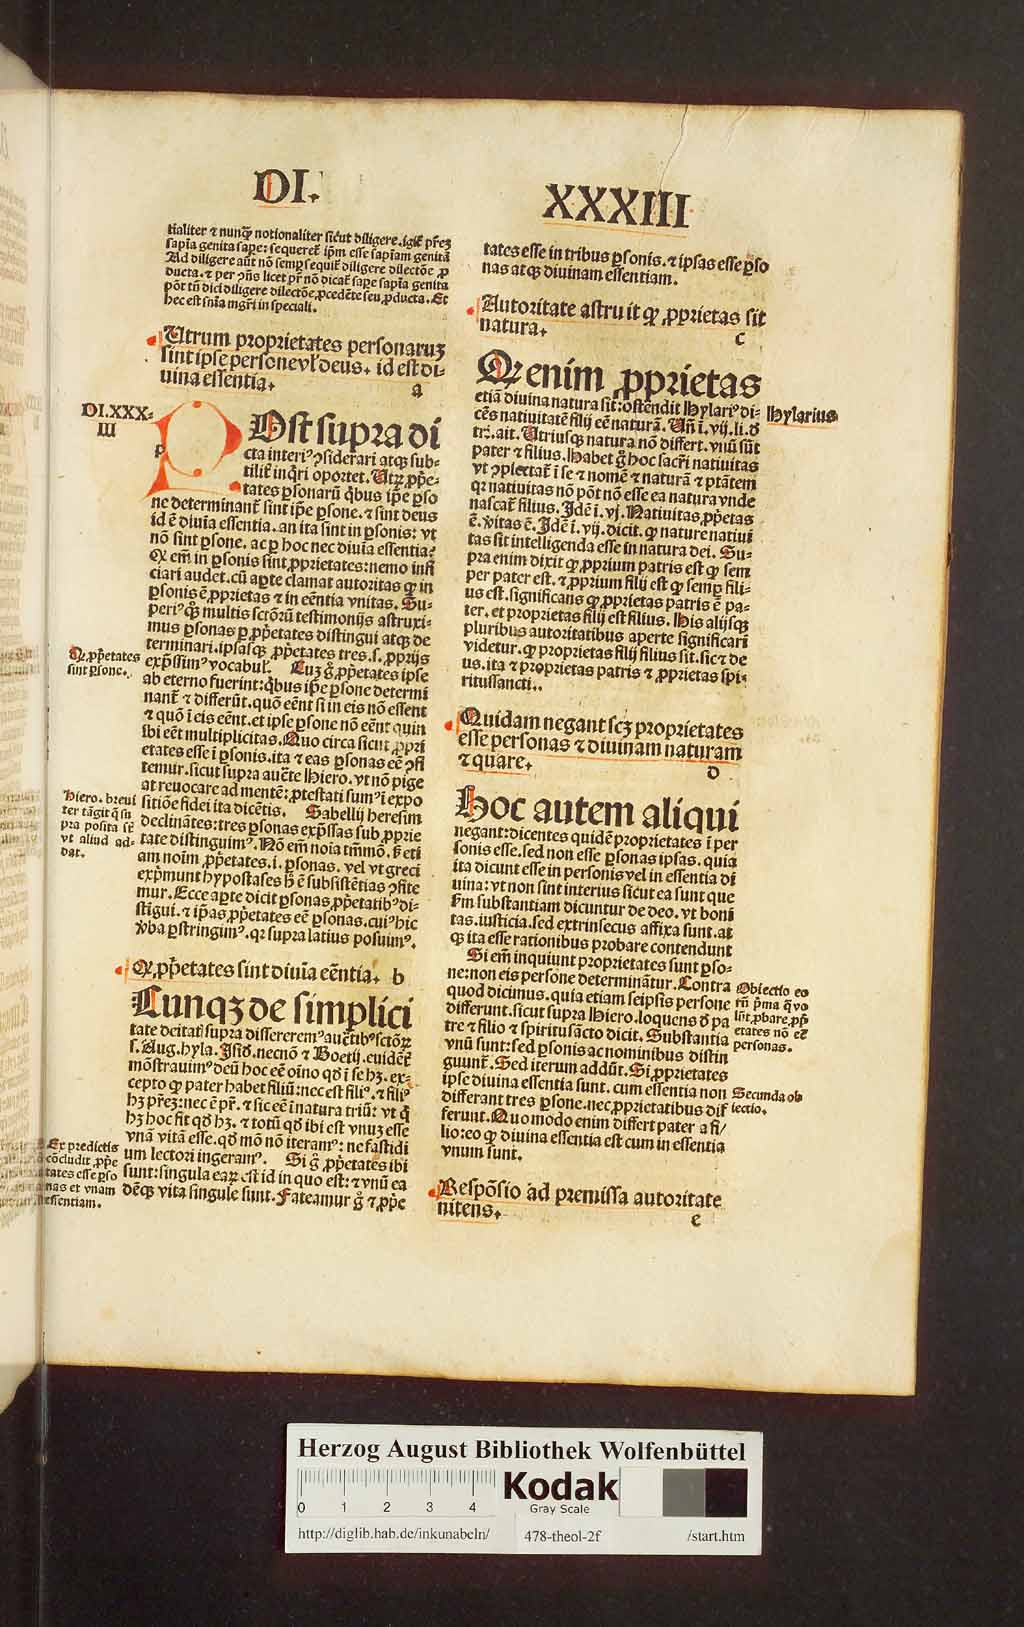 DI.
XXXIII
tialiter ⁊ nunqͣ notionaliter sicut diligere. igit̃ pr̃eʒ
sapĩa genita saꝑe: sequeret̃ ip̃m esse sapĩam genitã
Ad diligere aũt nõ semꝑ sequit̃ diligere dilectõe ꝓ
ducta. ⁊ per ꝯñs licet pr̃ nõ dicat̃ saꝑe sapĩa genita
põt tñ dici diligere dilectõe ꝓcedẽte seu ꝓducta. Et
hec est sñia mgr̃i in speciali.
Utrum proprietates personaruʒ
sint ipse persone vl̕ deus. id est di-
uina essentia. a
DI.XXX-
III
p
Ost supra di
cta interi⁹ ꝯsiderari atqʒ sub-
tilit̃ inq̃ri oportet. Utꝝ ꝓp̃e-
tates ꝑsonarũ q̃bus ip̃e ꝑso
ne determinant̃ sint ip̃e ꝑsone. ⁊ sint deus
id ẽ diuĩa essentia. an ita sint in ꝑsonis: vt
nõ sint ꝑsone. ac ꝑ hoc nec diuĩa essentia?
Qꝙ em̃ in ꝑsonis sint ꝓprietates: nemo infi
ciari audet. cũ aꝑte clamat autoritas ꝙ in
ꝑsonis ẽ ꝓprietas ⁊ in eẽntia vnitas. Su-
peri⁹ q̃ʒ multis sctõrũ testimonijs astruxi-
mus ꝑsonas ꝑ ꝓp̃etates distingui atqʒ de
terminari. ipsasqʒ ꝓp̃etates tres. s. ꝓprijs
exp̃ssim⁹ vocabul̕. Cuʒ g̃ ꝓp̃etates ipse
ab eterno fuerint: q̃bus ip̃e ꝑsone determi
nant̃ ⁊ differũt. quõ eẽnt si in eis nõ essent
⁊ quõ ĩ eis eẽnt. et ipse ꝑsone nõ eẽnt quin
ibi eẽt multiplicitas. Quo circa sicut ꝓpri
etates esse ĩ ꝑsonis. ita ⁊ eas ꝑsonas eẽ ꝯfi
temur. sicut supra auc̃te Hiero. vt nõ pige
at reuocare ad mentẽ: ꝓtestati sum⁹ ĩ expo
sitiõe fidei ita dicẽtis. Sabellij heresim
declinãtes: tres ꝑsonas exp̃ssas sub ꝓprie
tate distinguim⁹. Nõ em̃ noĩa tm̃mõ. s̃ eti
am noĩm ꝓp̃etates. i. ꝑsonas. vel vt greci
exp̃munt hypostases h̃ ẽ subsistẽtias ꝯfite
mur. Ecce aꝑte dicit ꝑsonas ꝓp̃etatib⁹ di-
stĩgui. ⁊ ip̃as ꝓp̃etates eẽ ꝑsonas. cui⁹ hic
ṽba ꝑstringim⁹. qꝛ supra latius posuim⁹.
Qꝙ ꝓp̃etates
sint ꝑsone.
Hiero. breui
ter tãgit q̃ su
pra posita sũt
vt aliud ad-
dat.
Qꝙ ꝓp̃etates sint diuĩa eẽntia. b
Cunqʒ de simplici
tate deitati supra dissererem⁹ auc̃tib⁹ sctõꝝ
s. Aug. hyla. Isid. necnõ ⁊ Boetij. euidẽt̃
mõstrauim⁹ deũ hoc eẽ oĩno qd̃ ĩ se hʒ. ex-
cepto ꝙ pater habet filiũ: nec est fili⁹. ⁊ fili⁹
hʒ pr̃eʒ: nec ẽ pr̃. ⁊ sic eẽ ĩ natura triũ: vt q̃
hʒ hoc fit qd̃ hʒ. ⁊ totũ qd̃ ibi est vnuʒ esse
vnã vitã esse. qd̃ mõ nõ iteram⁹: ne fastidi
um lectori ingeram⁹. Si g̃ ꝓp̃etates ibi
sunt: singula eaꝝ est id in quo est: ⁊ vnũ ea
dẽqʒ vita singule sunt. Fateamur g̃ ⁊ ꝓp̃e
Ex predictis
cõcludit ꝓp̃e
tates esse ꝑso
nas et vnam
essentiam.
tates esse in tribus ꝑsonis. ⁊ ipsas esse ꝑso
nas atqʒ diuinam essentiam.
Autoritate astruit ꝙ ꝓprietas sit
natura. c
Qꝙ enim ꝓprietas
etiã diuina natura sit: ostendit Hylari⁹ di-
cẽs natiuitatẽ filij eẽ naturã. Uñ ĩ. vij. li. d̃
tr̃. ait. Utriusqʒ natura nõ differt. vnũ sũt
pater ⁊ filius. Habet g̃ hoc sacrĩ natiuitas
vt ꝯplectat̃ ĩ se ⁊ nomẽ ⁊ naturã ⁊ ptãtem
qꝛ natiuitas nõ põt nõ esse ea natura vnde
nascat̃ filius. Idẽ ĩ. vj. Natiuitas ꝓp̃etas
ẽ. ṽitas ẽ. Idẽ ĩ. vij. dicit. ꝙ nature natiui
tas sit intelligenda esse in natura dei. Su-
pra enim dixit ꝙ ꝓprium patris est ꝙ sem
per pater est. ⁊ ꝓprium filij est ꝙ semꝑ fili-
us est. significans ꝙ ꝓprietas patris ẽ pa-
ter. et proprietas filij est filius. His alijsqʒ
pluribus autoritatibus aperte significari
videtur. ꝙ proprietas filij filius sit. sic ⁊ de
us. ita ⁊ proprietas patris ⁊ ꝓprietas spi-
ritussancti..
Hylarius
Quidam negant scʒ proprietates
esse personas ⁊ diuinam naturam
⁊ quare. d
Hoc autem aliqui
negant: dicentes quidẽ proprietates ĩ per
sonis esse. sed non esse ꝑsonas ipsas. quia
ita dicunt esse in personis vel in essentia di
uina: vt non sint interius sicut ea sunt que
s̃m substantiam dicuntur de deo. vt boni
tas. iusticia. sed extrinsecus affixa sunt. at
qʒ ita esse rationibus probare contendunt
Si em̃ inquiunt proprietates sunt ꝑso-
ne: non eis persone determinãtur. Contra
quod dicimus. quia etiam seipsis persone
differunt. sicut supra Hiero. loquens d̃ pa
tre ⁊ filio ⁊ spiritusãcto dicit. Substantia
vnũ sunt: sed ꝑsonis ac nominibus distin
guunt̃. Sed iterum addũt. Si ꝓprietates
ipse diuina essentia sunt. cum essentia non
differant tres ꝑsone. nec ꝓprietatibus dif
ferunt. Quomodo enim differt pater a fi/
lio: eo ꝙ diuina essentia est cum in essentia
vnum sunt.
Obiectio eo
rũ p̃ma q̃ vo
lũt ꝓbare ꝓp̃
etates nõ eẽ
personas.
Secunda ob
iectio.
Respõsio ad premissa autoritate
nitens. e
Herzog August Bibliothek Wolfenbüttel
0 1 2 3 4
Kodak
Gray Scale
http://diglib.hab.de/inkunabeln/ 478-theol-2f /start.htm